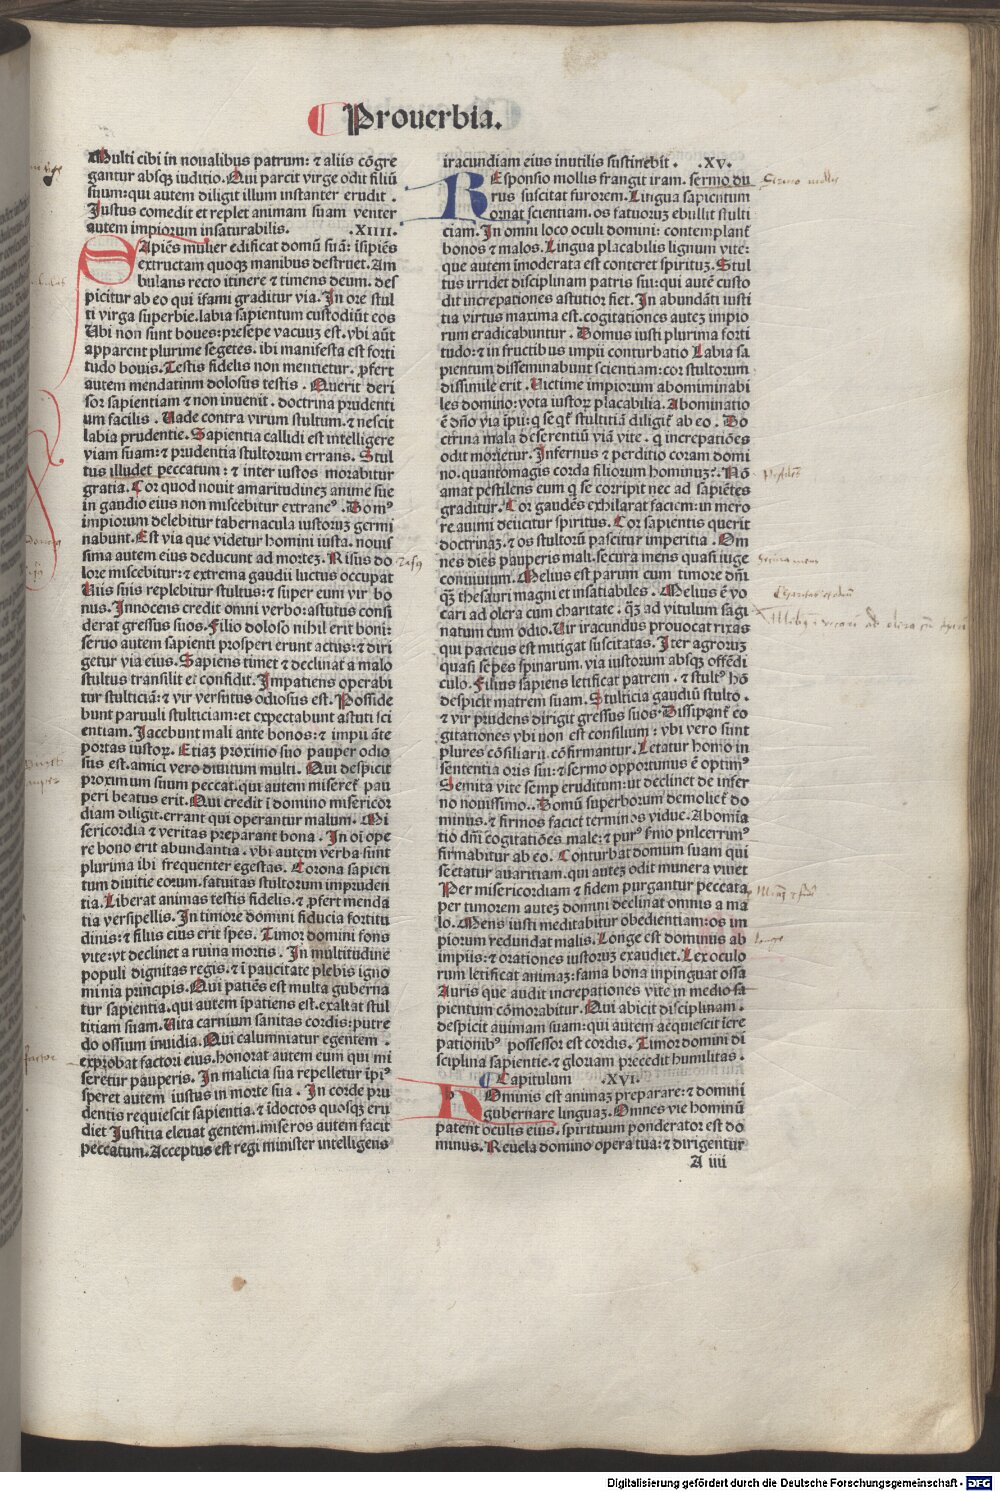 Prouerbia.
Multi cibi in noualibus patrum: ⁊ aliis cōgre
gantur absqꝫ iuditio. Qui parcit virge odit filiū
suum: qui autem diligit illum instanter erudit .
Justus comedit et replet animam suam venter
autem impiorum insaturabilis. .XIIII.
Sapiēs mulier edificat domū suā: īsipiēs
extructam quoqꝫ manibus destruet. Am
bulans recto itinere ⁊ timens deum. des
picitur ab eo qui īfami graditur via. In ore stul
ti virga superbie. labia sapientum custodiūt eos
Ubi non sunt boues: presepe vacuuꝫ est. vbi aūt
apparent plurime segetes. ibi manifesta est forti
tudo bouis. Testis fidelis non mentietur. ꝓfert
autem mendatium dolosus testis . Querit deri
sor sapientiam ⁊ non inuenit . doctrina prudenti
um facilis . Uade contra virum stultum. ⁊ nescit
labia prudentie. Sapientia callidi est intelligere
viam suam: ⁊ prudentia stultorum errans. Stul
tus illudet peccatum : ⁊ inter iustos morabitur
gratia. Cor quod nouit amaritudineꝫ anime sue
in gaudio eius non miscebitur extraneꝰ . Domꝰ
impiorum delebitur tabernacula iustoruꝫ germi
nabunt. Est via que videtur homini iusta. nouis
sima autem eius deducunt ad morteꝫ. Risus do
lore miscebitur: ⁊ extrema gaudii luctus occupat
Uiis suis replebitur stultus: ⁊ super eum vir bo
nus. Innocens credit omni verbo: astutus consi
derat gressus suos. Filio doloso nihil erit boni:
seruo autem sapienti prosperi erunt actus: ⁊ diri
getur via eius. Sapiens timet ⁊ declinat a malo
stultus transilit et confidit. Impatiens operabi
tur stulticiā: ⁊ vir versutus odiosus est. Posside
bunt paruuli stulticiam: et expectabunt astuti sci
entiam. Jacebunt mali ante bonos: ⁊ impii āte
portas iustoꝝ. Etiaꝫ proximo suo pauper odio
sus est. amici vero diuitum multi . Qui despicit
proximum suum peccat. qui autem miseret̄ pau
peri beatus erit. Qui credit ī domino misericor
diam diligit. errant qui operantur malum. Mi
sericordia ⁊ veritas preparant bona . In oī ope
re bono erit abundantia . vbi autem verba sunt
plurima ibi frequenter egestas. Corona sapien
tum diuitie eorum. fatuitas stultorum impruden
tia. Liberat animas testis fidelis. ⁊ ꝓfert menda
tia versipellis. In timore domini fiducia fortitu
dinis: ⁊ filiis eius erit spes. Timor domini fons
vite: vt declinet a ruina mortis . In multitudine
populi dignitas regis. ⁊ ī paucitate plebis igno
minia principis. Qui patiēs est multa guberna
tur sapientia. qui autem īpatiens est. exaltat stul
titiam suam. Uita carnium sanitas cordis: putre
do ossium inuidia. Qui calumniatur egentem .
exprobat factori eius. honorat autem eum qui mi
seretur pauperis. In malicia sua repelletur īpiꝰ
speret autem iustus in morte sua . In corde pru
dentis requiescit sapientia. ⁊ īdoctos quosqꝫ eru
diet Justitia eleuat gentem. miseros autem facit
peccatum. Acceptus est regi minister intelligens
iracundiam eius inutilis sustinebit . .XV.
Responsio mollis frangit iram. sermo du
rus suscitat furorem. Lingua sapientum
ornat scientiam. os fatuoruꝫ ebullit stulti
ciam. In omni loco oculi domini: contemplant̄
bonos ⁊ malos. Lingua placabilis lignum vite:
que autem īmoderata est conteret spirituꝫ. Stul
tus irridet disciplinam patris sui: qui autē custo
dit increpationes astutior fiet. In abundāti iusti
tia virtus maxima est. cogitationes auteꝫ impio
rum eradicabuntur . Domus iusti plurima forti
tudo: ⁊ in fructibus impii conturbatio Labia sa
pientum disseminabunt scientiam: cor stultorum
dissimile erit . Uictime impiorum abominiabi
les domino: vota iustoꝝ placabilia. Abominatio
ē dn̄o via īpii: q̄ seqt̄ stultitiā diligit̄ ab eo . Do
ctrina mala deserentiū viā vite . q̄ increpatiōes
odit morietur. Infernus ⁊ perditio coram domi
no. quantomagis corda filiorum hominuꝫ?. Nō
amat pestilens eum q̄ se corripit nec ad sapiētes
graditur. Cor gaudēs exhilarat faciem: in mero
re animi deiicitur spiritus. Cor sapientis querit
doctrinaꝫ. ⁊ os stultorū pascitur imperitia . Om
nes dies pauperis mali. secura mens quasi iuge
conuiuium. Melius est parum cum timore dn̄i
qꝫ̄ thesauri magni et insatiabiles . Melius ē vo
cari ad olera cum charitate : qꝫ̄ ad vitulum sagi
natum cum odio. Uir iracundus prouocat rixas
qui paciens est mitigat suscitatas. Iter agroruꝫ
quasi sepes spinarum. via iustorum absqꝫ offēdi
culo. Filius sapiens letificat patrem . ⁊ stultꝰ hō
despicit matrem suam. Stulticia gaudiū stulto .
⁊ vir prudens dirigit gressus suos. Dissipant̄ co
gitationes vbi non est consilium: vbi vero sunt
plures cōsiliarii cōfirmantur. Letatur homo in
sententia oris sui: ⁊ sermo opportunus ē optimꝰ
Semita vite semꝑ eruditum: vt declinet de infer
no nouissimo. Domū superborum demoliet̄ do
minus. ⁊ firmos faciet terminos vidue. Abomīa
tio dn̄i cogitatiōes male: ⁊ purꝰ ẜmo pulcerrimꝰ
firmabitur ab eo. Conturbat domum suam qui
sectatur auaritiam. qui auteꝫ odit munera viuet
Per misericordiam ⁊ fidem purgantur peccata
per timorem auteꝫ domini declinat omnis a ma
lo. Mens iusti meditabitur obedientiam: os im
piorum redundat malis. Longe est dominus ab
impiis: ⁊ orationes iustoruꝫ exaudiet. Lex oculo
rum letificat animaꝫ: fama bona inpinguat ossa
Auris que audit increpationes vite in medio sa
pientum cōmorabitur. Qui abicit disciplinam .
despicit animam suam: qui autem acquiescit īcre
pationibꝰ possessor est cordis. Timor domini di
sciplina sapientie. ⁊ gloriam precedit humilitas .
Capitulum .XVI.
Hominis est animaꝫ preparare: ⁊ domini
gubernare linguaꝫ. Omnes vie hominū
patent oculis eius. spirituum ponderator est do
minus. Reuela domino opera tua: ⁊ dirigentur
A iiii
Sermo mollis
Secura mens
Digitalisierung gefördert durch die Deutsche Forschungsgemeinschaft - DFG